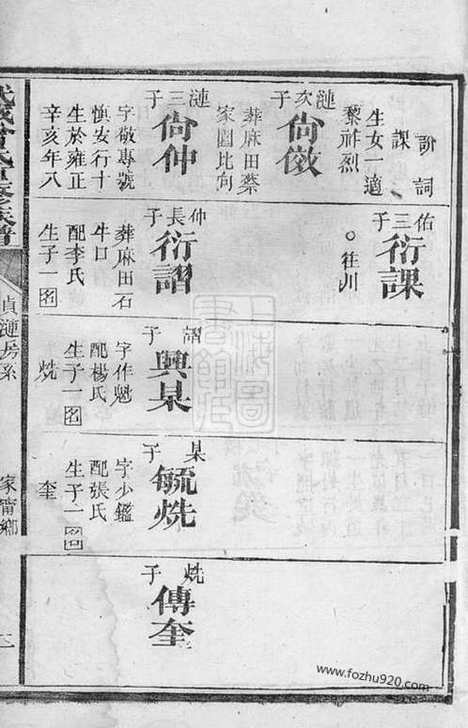 詥詞
課
生女一適
黎祚烈
漣次子
尙徵
葬麻田蔡
家園比向
漣三子
尙仲
字敬專號
慎安行十
生於雍正
辛亥年八
佑三子
衍課
○往川
仲長子
衍謂
葬麻田石
牛口
配李氏
生子一名
謂子
興杲
字作魁
配楊氏
生子一名
烍
杲子
毓烍
字少鑑
配張氏
生子一名
奎
烍子
傳奎
貞漣房系
家甯鄉
www.fozhu920.com